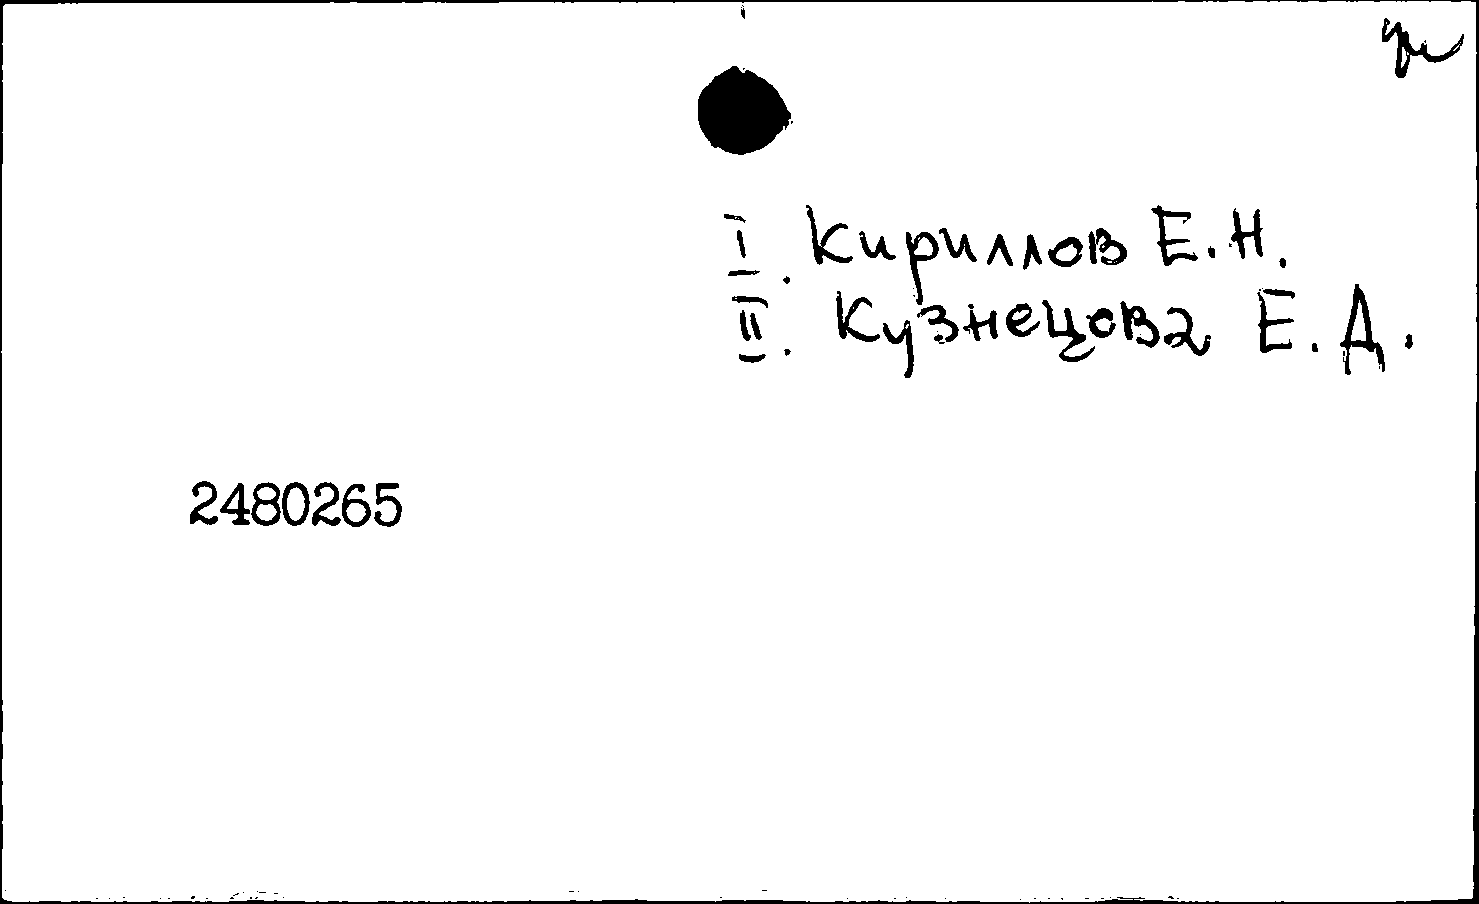 I. Кириллов Е.Н.
II. Кузнецова Е.Д.
2480265